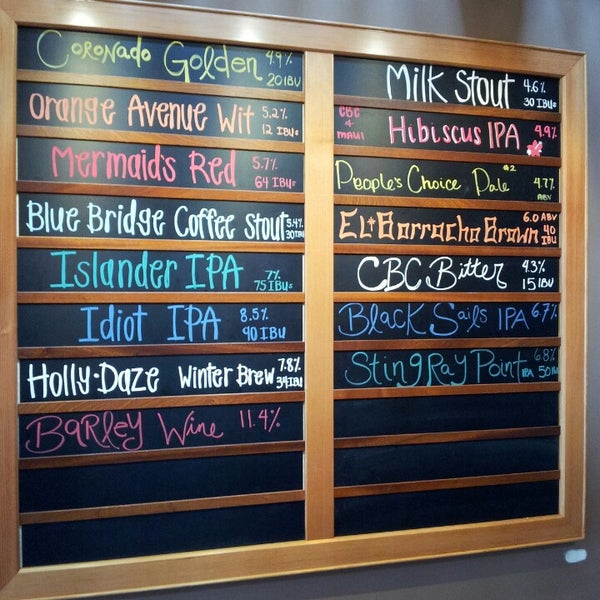 Coronado Golden 4.9% 20 IBU
Orange Avenue Wit 5.2% 12 IBUs
Mermaid's Red 5.7% 64 IBUs
Blue Bridge Coffee Stout 5.4% 30 IBUs
Islander IPA 7% 75 IBUs
Idiot IPA 8.5% 90 IBU
Holly-Daze Winter Brew 7.8% 34 IBU
Barley Wine 11.4%
Milk Stout 4.6% 30 IBUs
CBC & MAUI Hibiscus IPA 4.9%
People's Choice Pale #2 4.7% ABV
El Borracho Brown 6.0 ABV 40 IBU
CBC Bitter 4.3% 15 IBU
Black Sails IPA 6.7%
Sting Ray Point IPA 6.8% 50 IBU